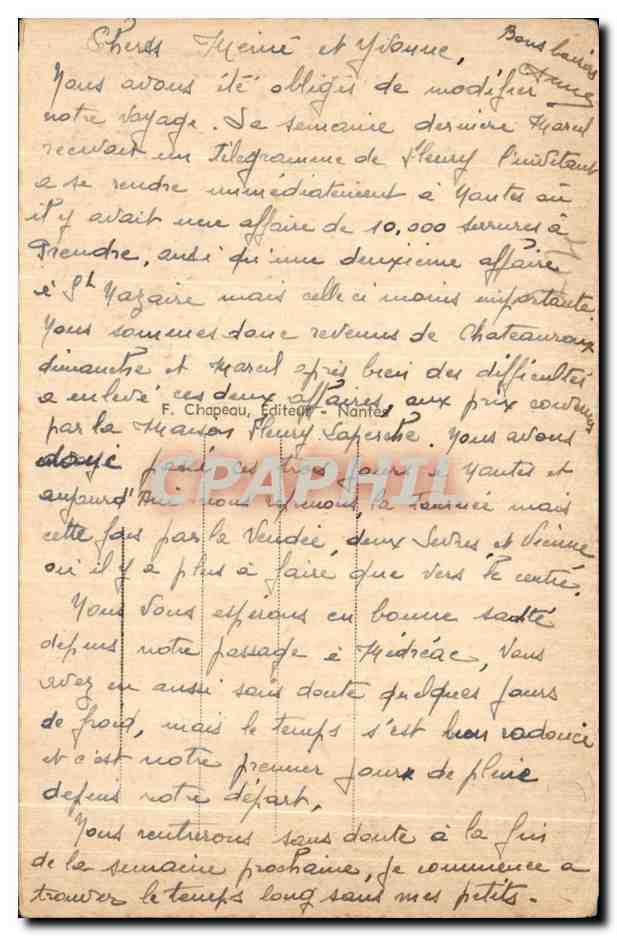 Chers Mémé et Yvonne,
Bons baisers
Anne
Nous avons été obligés de modifier
notre voyage. La semaine dernière Marcel
recevait un télégramme de Fleury l'invitant
a se rendre immédiatement à Nantes où
il y avait une affaire de 10.000 serrures à
prendre, ainsi qu'une deuxième affaire
à St Nazaire mais celle ci moins importante
Nous sommes donc revenus de Chateauroux
dimanche et Marcel après bien des difficultés
a enlevé ces deux affaires, aux prix convenus
F. Chapeau, Editeur - Nantes
par la Maison Fleury Laperche. Nous avons
passé ces trois jours à Nantes et
CPAPHIL
aujourd'hui nous reprenons la tournée mais
cette fois par la Vendée, deux Sèvres, et Vienne
où il y a plus à faire que vers le centre.
Nous vous espérons en bonne santé
depuis notre passage à Médréac, Vous
avez eu aussi sans doute quelques jours
de froid, mais le temps s'est bien radouci
et c'est notre premier jour de pluie
depuis notre départ.
Nous rentrerons sans doute à la fin
de la semaine prochaine, je commence a
trouver le temps long sans mes petits.